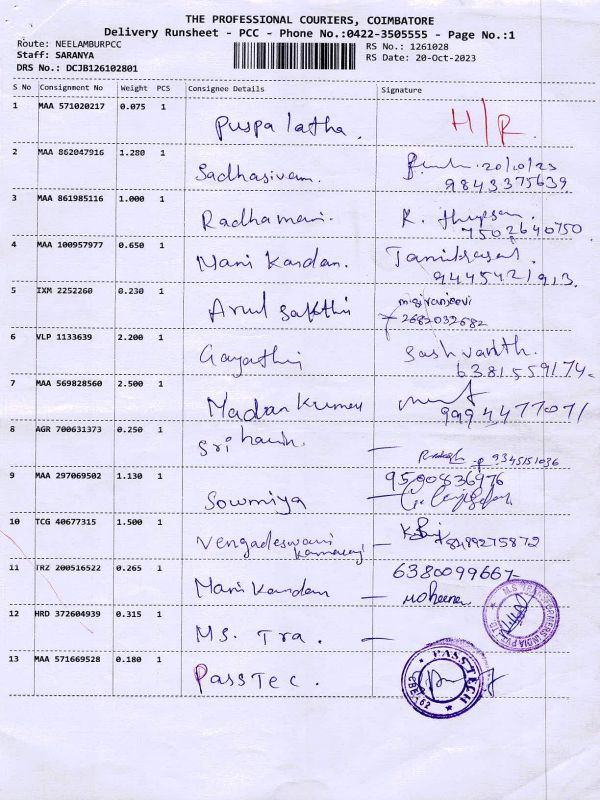 THE PROFESSIONAL COURIERS, COIMBATORE
Delivery Runsheet - PCC - Phone No.:0422-3505555 - Page No.:1
Route: NEELAMBURPCC
Staff: SARANYA
DRS No.: DCJB126102801
RS No.: 1261028
RS Date: 20-Oct-2023
S No Consignment No Weight PCS Consignee Details Signature
1 MAA 571020217 0.075 1 Puspa latha. H/R.
2 MAA 862047916 1.280 1 Sadhasivam. 20/10/23
9843375639
3 MAA 861985116 1.000 1 Radhamani. K.
7502640750
4 MAA 100957977 0.650 1 Mani Kandan.
9445421913.
5 IXM 2252260 0.230 1 Arul Sakthi
2682032682
6 VLP 1133639 2.200 1 Gayathri Sashvanth.
6381559174
7 MAA 569828560 2.500 1 Madan Kumar
9994477071
8 AGR 700631373 0.250 1 Sri 9345151036
9 MAA 297069502 1.130 1 Sowmiya 9500836976
10 TCG 40677315 1.500 1 Vengadeswari
8489275872
11 TRZ 200516522 0.265 1 Mani Kandan 6380099667
12 HRD 372604939 0.315 1 MS. Tra. —
13 MAA 571669528 0.180 1 PassTec. PASSTECH